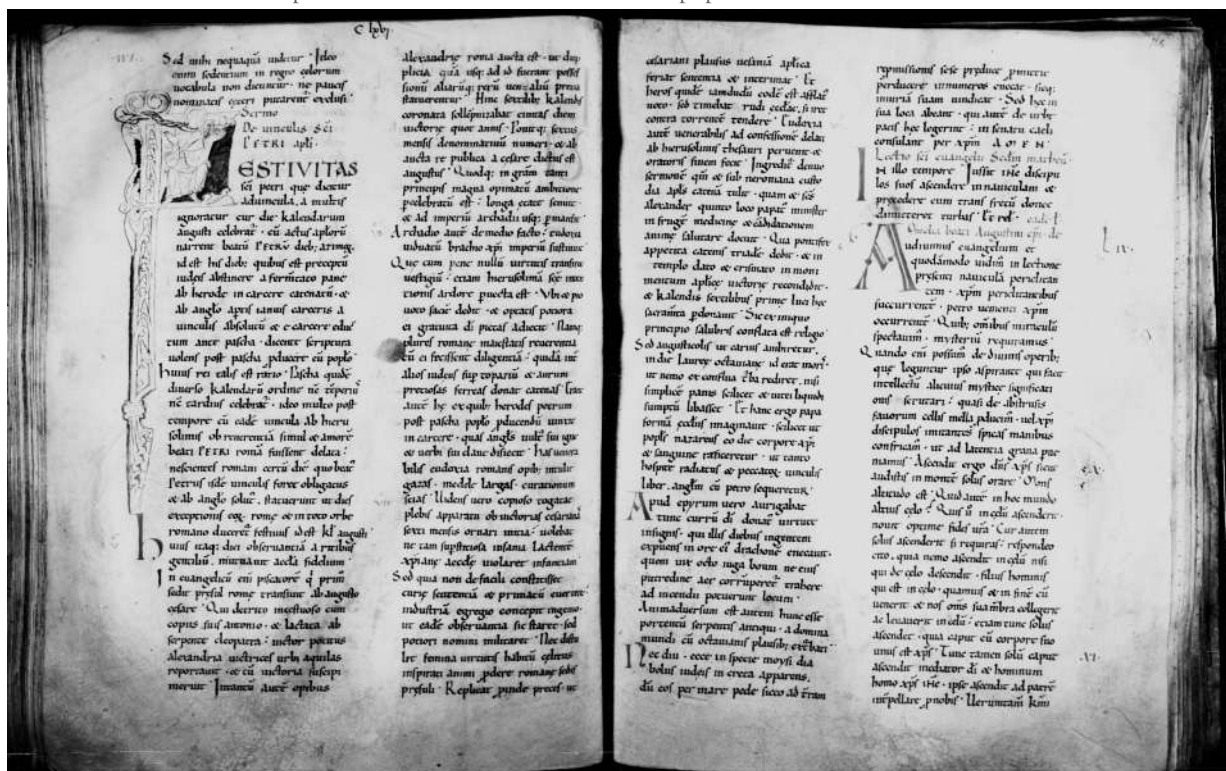 C lxvi
Sed mihi nequaquā uidetur. Ideo
enim sedentium in regno celorum
uocabula non dicuntur. ne paucis
nominatis ceteri putarent exclusi.
Sermo
De uinculis sci
PETRI apli.
FESTIVITAS
sci petri que dicitur
aduincula, a multis
ignoratur cur die kalendarum
augusti celebrat. cū actus aplorū
narrent beatū PETRV dieb; azimoꝝ.
id est his dieb; quibus est preceptū
iudeis abstinere a fermtaco pane
ab herode in carcere catenatū. &
ab anglo aptis ianuis carceris a
uinculis absolutū & e carcere educ
tum ante pascha. dicente scriptura
uolens post pascha pducere eū poplo
huius rei talis est ratio. Pascha quidē
diuerso kalendarū ordine
tardius celebrat. ideo multo post
tempore cū eadē uincula ab hieru
solimis ob reuerentia simul & amorē
beati PETRI romā fuissent delata.
nescientes romani certū diē quo beat
Petrus isdē uinculis foret obligatus
& ab anglo solut. statuerunt ut dies
exceptionis eoꝝ rome & in toto orbe
romano duceret festiuus id est kl augusti
huius itaq; diei obseruantia a ritibus
gentiliū. mutuauit aeccla fidelium
In euangelicū eni piscatorē q prim
sedit presul rome transiuit ab augusto
cesare. Qui detrito incestuoso cum
copiis suis antonio. & lactata ab
serpente cleopatra. uictor potitus
alexandria uictrices urbi aquilas
reportauit. & cū uictoria suscipi
meruit. Intantū autē opibus
alexandrie roma aucta est. ut dup
plicia quā usq; ad id fuerant posses
sionū aliarūq; rerū uenaliū precia
statuerentur. Hinc sextilib; kalendis
coronata sollepnizabat ciuitas diem
uictorie quot annis. Postq; sextus
mensis denominatiuū numeri. & ab
aucta re publica a cesare dictus est
augustus. Quodq; in gram tanti
principis magna opimatū ambitione
pcelebratū est. longa etate senuit
& ad imperiū archadii usq; pmansit
Archadio autē de medio facto. eudoxia
uiduatū brachio xpi imperiū sustinuit
Que cum pene nullū uirtutis transiret
uestigiū. etiam hierusolimā
tionis ardore puecta est. Vbi & pio
uoto facie dedit. & operatis potiora
ei gratuita di pietas adiecit. Namq;
plures romane maiestatis reuerentia
cū ei fecissent diligentia. quidā int
alios iudeus sup topariū & aurum
preciosas ferreas donat catenas.
autē he ex quib; herodes petrum
post pascha poplo pducendū uinxit
in carcere. quas angls
& uerbi sui claue dissecit. Has uenera
bilis eudoxia romanis opib; intulit
gazas. medele largas. curationum
scias. Uidens uero copioso togatae
plebis apparatu ob uictorias cesarianas
sexti mensis ornari initia. uolebat
ne tam supstitiosa insania lactente
xpianę aecclę uiolaret infantiam
Sed quia non de facili constitisset
curię sententia & primatū euerteret
industriā egregio concepit ingenio.
ut eadē obseruantia sic staret. sed
potiori nomini militaret. Nec distu
lit femina uirtutis habitū celitus
inspirati animi pdere romanę sedis
presuli. Replicat pinde preces. ut
cesariani plausus uesania aplica
feriat sententia & interimat. Et
heros quidē iamdudū eodē est afflat
uoto. sed timebat rudi ecclae, si iret
contra torrentē tendere. Eudoxia
autē uenerabilis ad confessionē delati
ab hierusolimis thesauri peruenit. &
oratoris finem fecit. Ingredit denuo
sermonē qm & sub neroniana custo
dia apls catenā tulit. quam & scs
alexander quinto loco papat minister
in frugē medicinę & ad laudationem
anime salutare docuit. Qua pontifex
apperita catenis triade debit. & in
templo dato & crismato in moni
mentum aplice uictorie recondidit.
& kalendis sextilibus prime luci hec
sacrauita pdonauit. Sic ex iniquo
principio salubris conflata est religio
Sed angusticolis ut carius ambiretur.
in die laureę octauiane. id erat moris.
ut nemo ex rediret. nisi
simplicē panis scilicet & uitei liquidi
sumptū libasset. Et hanc ergo papa
formā ecclis imaginauit. scilicet ut
popls nazareus eo die corpore xpi
& sanguine reficeretur. ut tanto
hospite radiatus & peccatoꝝ uinculis
liber. anglm cū petro sequeretur.
Apud epyrum uero aurigabat
tunc currū di donat uirtute
insignis. qui illis diebus ingentem
expuens in ore ei drachonē enecauit.
quem uix octo iuga boum ne eius
putredine aer corrūperet trahere
ad incendiū potuerunt locum.
Animaduersum est autem hunc esse
portentū serpentis antiqui. a domina
mundi cū octauianis plausib; extbari.
Nec diu. ecce in specie moysi dia
bolus iudeis in creta apparens.
dū eos per mare pede sicco ad trram
repmissionis sese preduce pmittit
perducere innumeros enecat. sicq;
iniuriā suam uindicat. Sed hec in
sua loca abeant. qui aute de urbe
pacis hec legerint. in senatu caeli
consulant per xpm. A M E N.
Lectio sci euangelii Scdm matheū
IN illo tempore. Iussit ihc discipu
los suos ascendere in nauiculam &
precedere eum trans fretū donec
dimitteret turbas. Et rel.
Omelia beati Augustini epi. de
Audiuimus euangelium et
quodāmodo uidim in lectione
presenti nauiculā periclitan
tem. xpm periclitantibus
succurrentē. petro uenienti xpm
occurrentē. Quib; omibus miraculū
spectauim. mysteriū requiramus.
Quando eni possum de diuinis operib;
que leguntur ipso aspirante qui facit
intellectū alicuius mysticę significati
onis scrutari. quasi de abstrusis
fauorum cellis mella pducim. uel xpi
discipulos imitantes spicas manibus
confricam. ut ad latentia grana pue
niamus. Ascendit ergo dns xps sicut
audistis in montē solus orare. Mons
altitudo est. Quid autē in hoc mundo
altius celo? Quis ū in celū ascenderit.
nouit optime fides ura. Cur autem
solus ascenderit si requiras. respondeo
cito. quia nemo ascendit in celū nisi
qui de celo descendit. filius hominis
qui est in celo. quamuis & in fine cū
uenerit & nos omis sua mbra collegerit
ac leuauerit in celū. etiam tunc solus
ascendet. quia caput cū corpore suo
unus est xps. Tunc tamen solū caput
ascendit mediator di & hominum
homo xps ihc. ipse ascendit ad patrē
intpellare pnobis. Uerumtam kmi
L IX.
X.
XI.